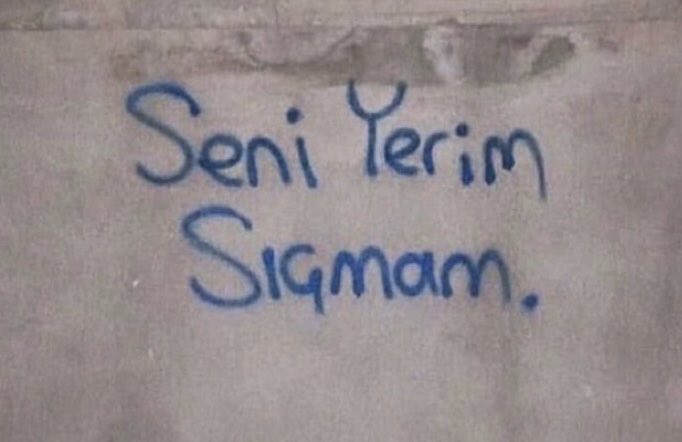 Seni Yerim
Sıgmam.